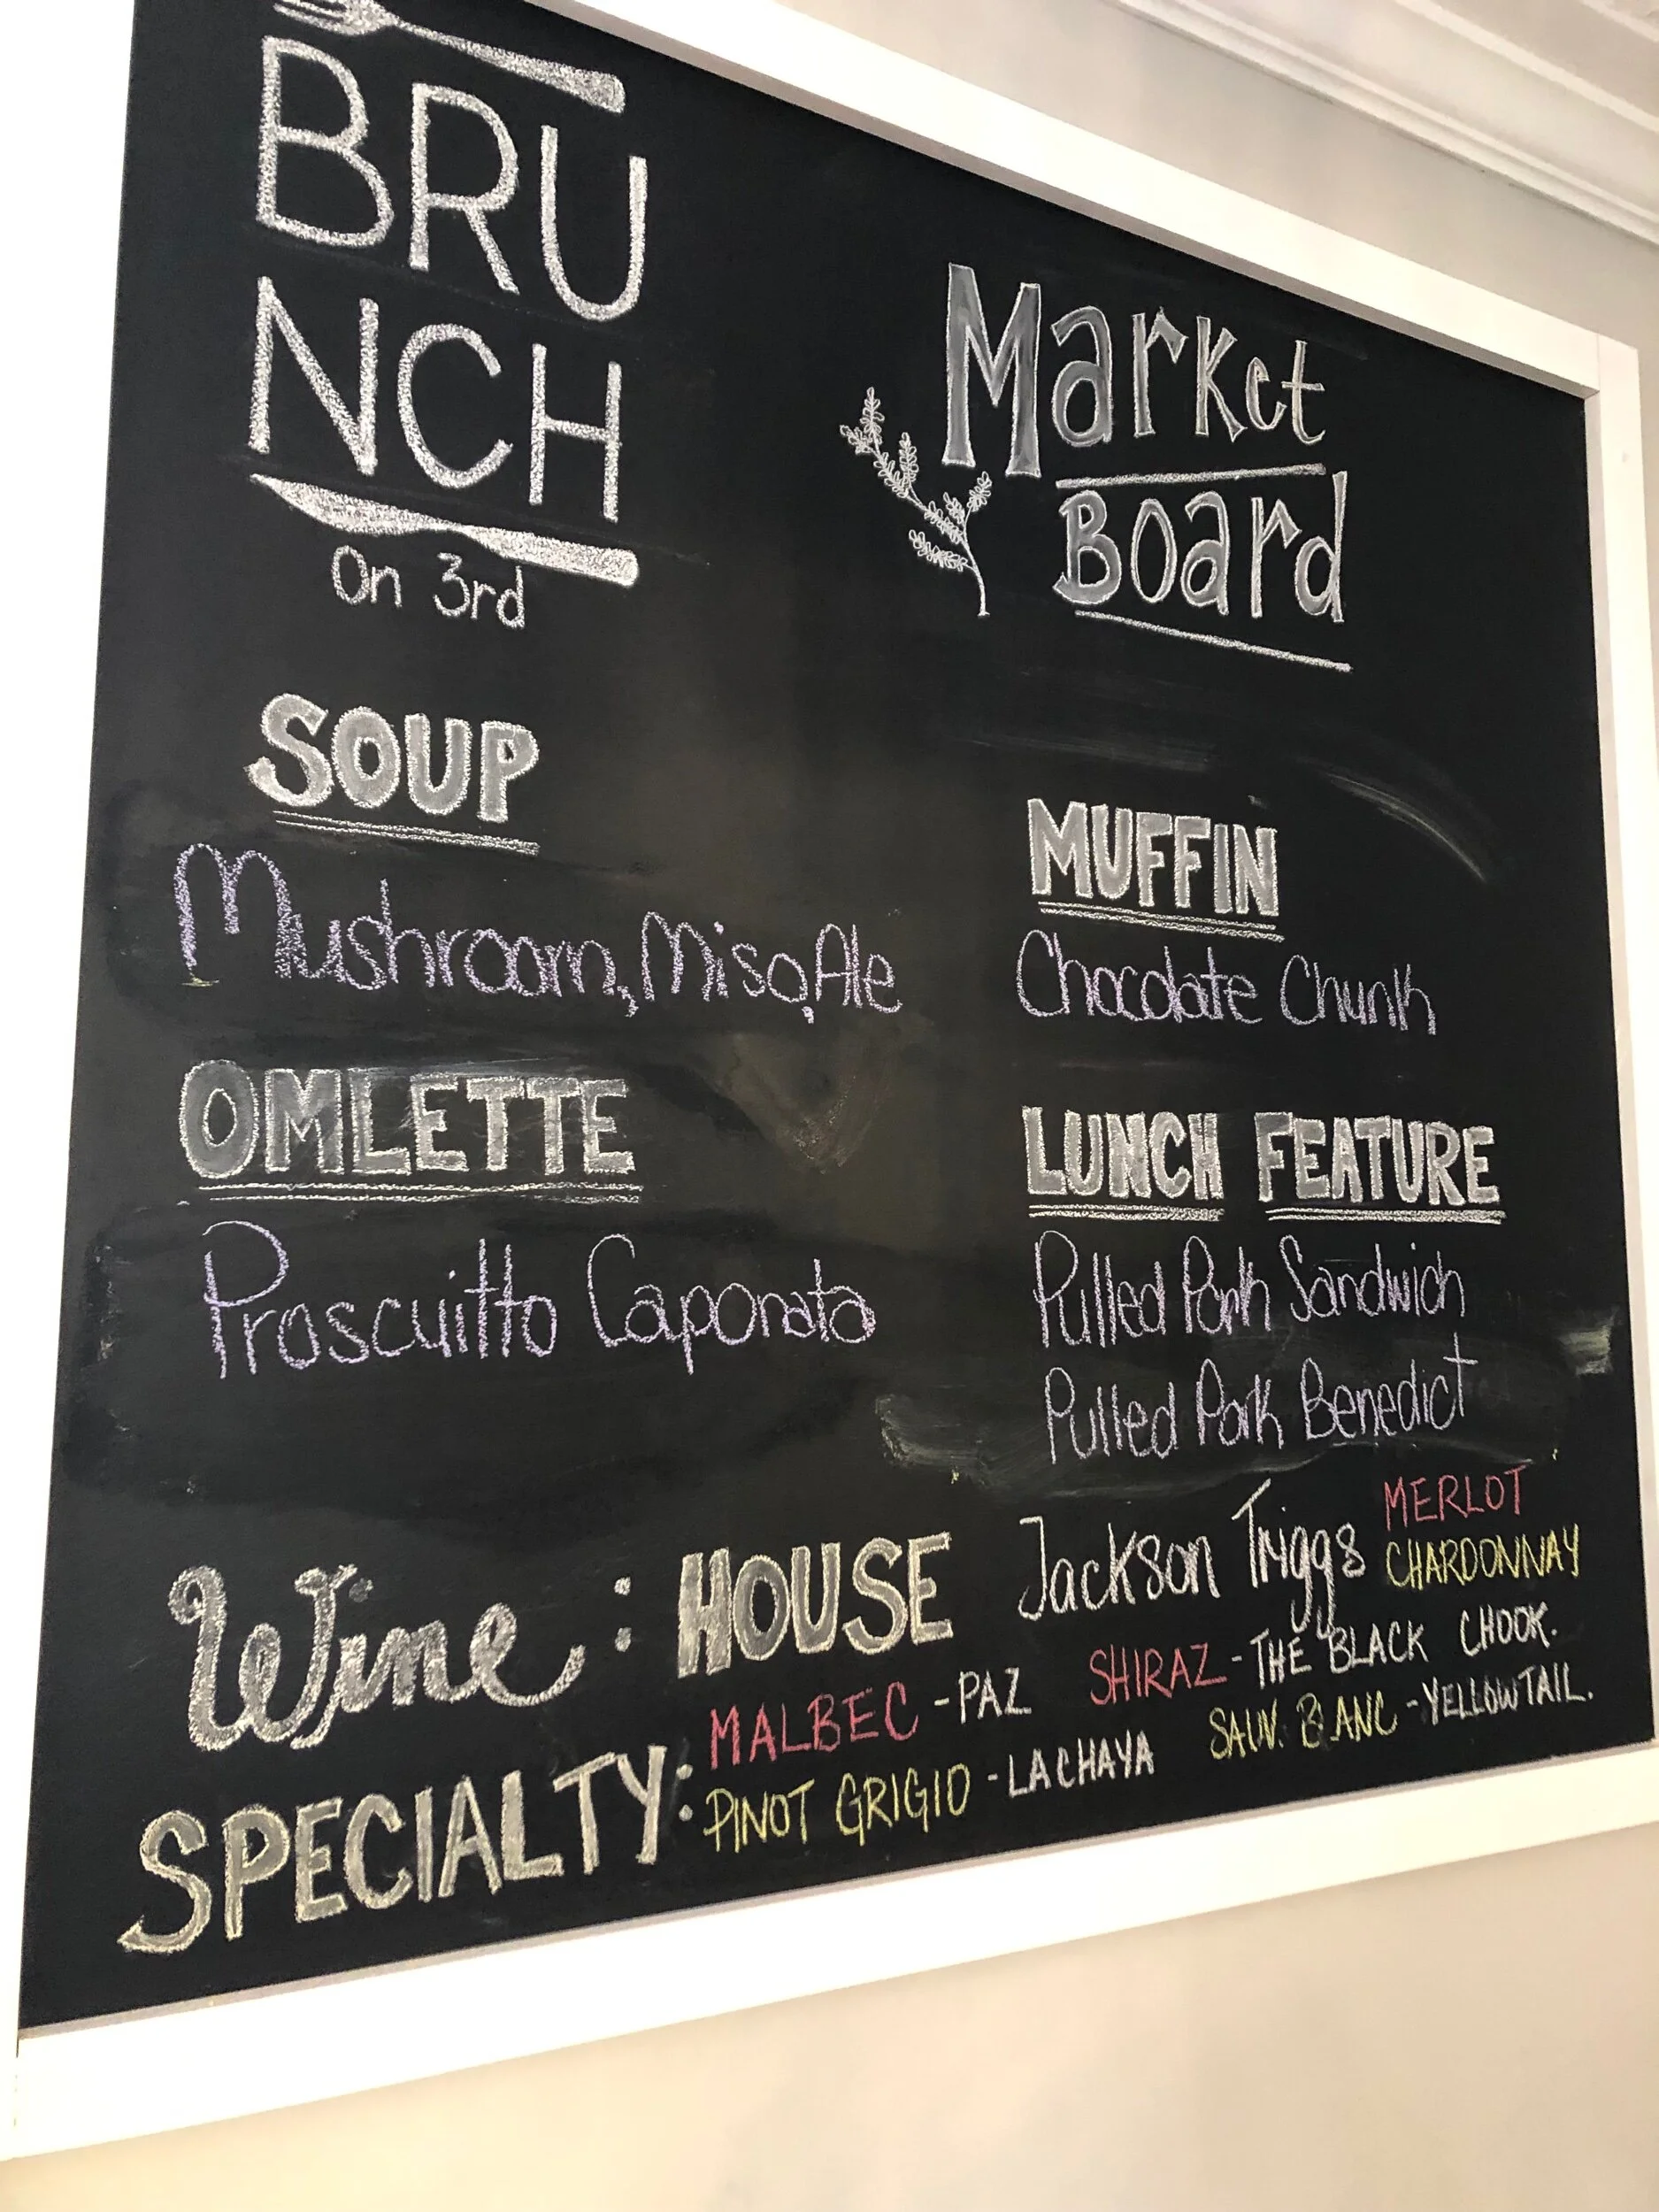 BRU
NCH
On 3rd
Market
Board
SOUP
Mushroom, Miso, Ale
MUFFIN
Chocolate Chunk
OMLETTE
Proscuitto Caponata
LUNCH FEATURE
Pulled Pork Sandwich
Pulled Pork Benedict
Wine: HOUSE Jackson Triggs MERLOT
CHARDONNAY
SPECIALTY: MALBEC - PAZ SHIRAZ - THE BLACK CHOOK.
PINOT GRIGIO - LA CHAYA SAUV. BLANC - YELLOWTAIL.